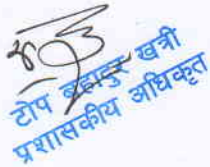 टोप बहादुर खत्री
प्रशासकीय अधिकृत